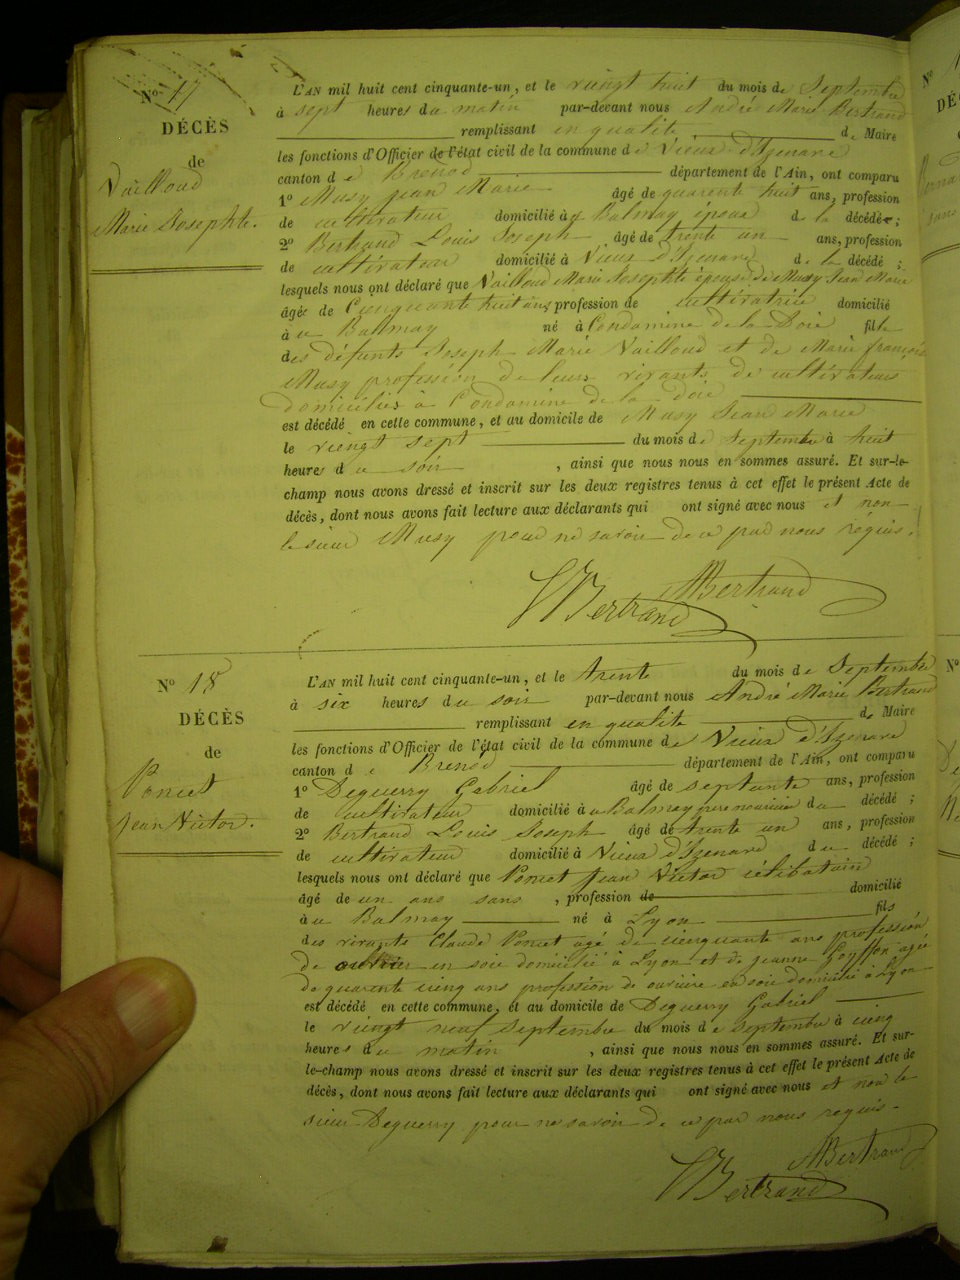 Nº 17
DÉCÈS
de
Vailloud
Marie Josephte.
L'AN mil huit cent cinquante-un, et le vingt huit du mois de Septembre
à sept heures du matin par-devant nous André Marie Bertrand
remplissant en qualité de Maire
les fonctions d'Officier de l'état civil de la commune de Vieux d'Izenave
canton de Brenod département de l'Ain, ont comparu
1º Musy Jean Marie âgé de quarente huit ans, profession
de cultivateur domicilié à Balmay époux de la décédée ;
2º Bertrand Louis Joseph, âgé de trente un ans, profession
de cultivateur domicilié à Vieux d'Izenave de la décédé ;
lesquels nous ont déclaré que Vailloud Marie Josephte épouse de Musy Jean Marie
âgée de Cinquante huit ans profession de cultivatrice domicilié
à au Balmay né à Condamine de la Doie fille
des défunts Joseph Marie Vailloud et de Marie françoise
Musy profession de leurs vivants de cultivateurs
domiciliés à Condamine de la doie
est décédé en cette commune, et au domicile de Musy Jean Marie
le vingt sept du mois de Septembre à huit
heures du soir, ainsi que nous nous en sommes assuré. Et sur-le-
champ nous avons dressé et inscrit sur les deux registres tenus à cet effet le présent Acte de
décès, dont nous avons fait lecture aux déclarants qui ont signé avec nous et non
le sieur Musy pour ne savoir de ce par nous requis.
Bertrand ABertrand
Nº 18
DÉCÈS
de
Poncet
Jean Victor.
L'AN mil huit cent cinquante-un, et le trente du mois de Septembre
à six heures du soir par-devant nous André Marie Bertrand
remplissant en qualité de Maire
les fonctions d'Officier de l'état civil de la commune de Vieux d'Izenave
canton de Brenod département de l'Ain, ont comparu
1º Deguerry Gabriel âgé de septante ans, profession
de cultivateur domicilié à au Balmay père nouricier du décédé ;
2º Bertrand Louis Joseph âgé de trente un ans, profession
de cultivateur domicilié à Vieux d'Izenave du décédé ;
lesquels nous ont déclaré que Poncet Jean Victor célibatain
âgé de un ans sans, profession de domicilié
à au Balmay né à Lyon fils
des vivants Claude Poncet agé de cienquante ans profession
de ouvrier en soie domicilié à Lyon et de jeanne Goyffon agée
de quarente cinq ans profession de ouvrière en soie domicilié à Lyon
est décédé en cette commune, et au domicile de Deguerry Gabriel
le vingt neuf Septembre du mois de Septembre à cinq
heures du matin, ainsi que nous nous en sommes assuré. Et sur-
le-champ nous avons dressé et inscrit sur les deux registres tenus à cet effet le présent Acte de
décès, dont nous avons fait lecture aux déclarants qui ont signé avec nous et non le
sieur Deguerry pour ne savoir de ce par nous requis.
Bertrand ABertrand